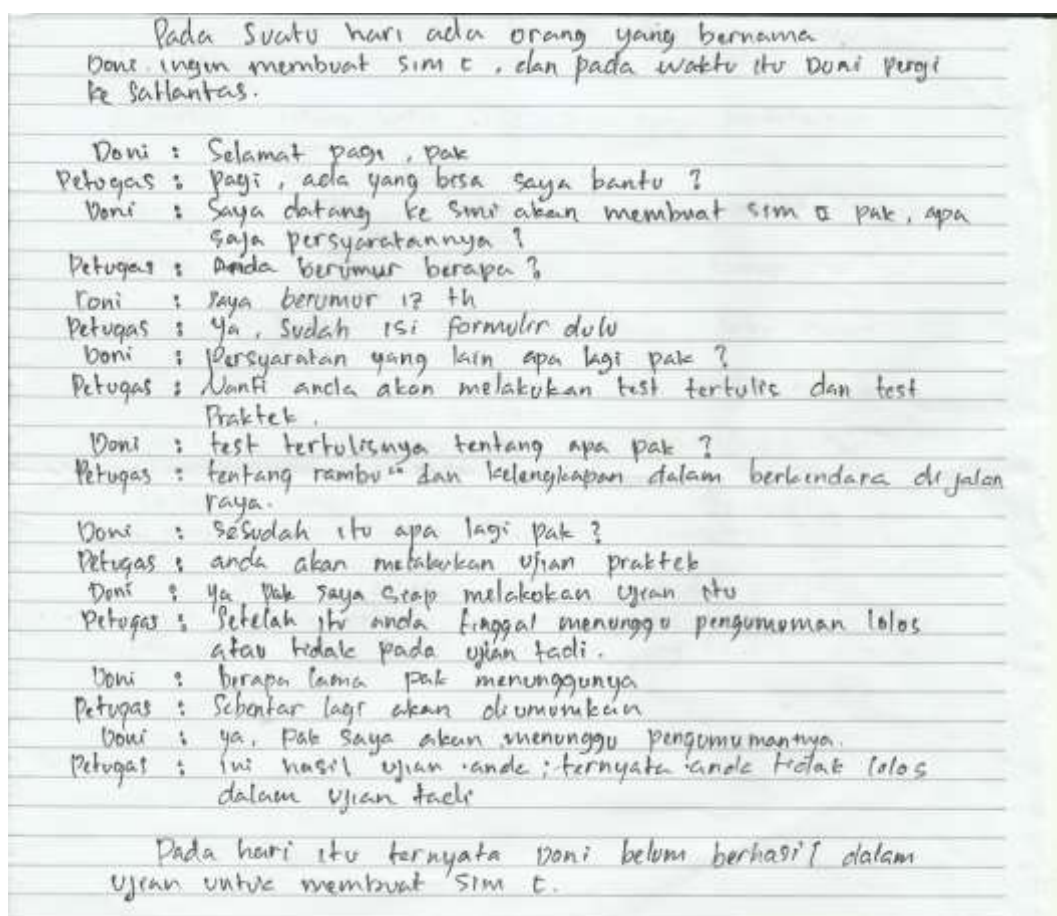 Pada Suatu hari ada orang yang bernama
Doni ingin membuat SIM C, dan pada waktu itu Doni pergi
ke Satlantas.
Doni : Selamat pagi, pak
Petugas : Pagi, ada yang bisa saya bantu ?
Doni : Saya datang ke sini akan membuat SIM C pak, apa
saja persyaratannya ?
Petugas : Anda berumur berapa ?
Toni : Saya berumur 17 th
Petugas : Ya, Sudah isi formulir dulu
Doni : Persyaratan yang lain apa lagi pak ?
Petugas : Nanti anda akan melakukan test tertulis dan test
Praktek.
Doni : test tertulisnya tentang apa pak ?
Petugas : tentang rambu" dan kelengkapan dalam berkendara di jalan
raya.
Doni : Sesudah itu apa lagi pak ?
Petugas : anda akan melakukan ujian praktek
Doni : Ya pak saya siap melakokan ujian itu
Petugas : Setelah itu anda tinggal menunggu pengumuman lolos
atau tidak pada ujian tadi.
Doni : berapa lama pak menunggunya
Petugas : Sebentar lagi akan diumumkan
Doni : ya, pak saya akan menunggu pengumumannya.
Petugas : ini hasil ujian anda ; ternyata anda tidak lolos
dalam ujian tadi
Pada hari itu ternyata Doni belum berhasil dalam
ujian untuk membuat SIM C.